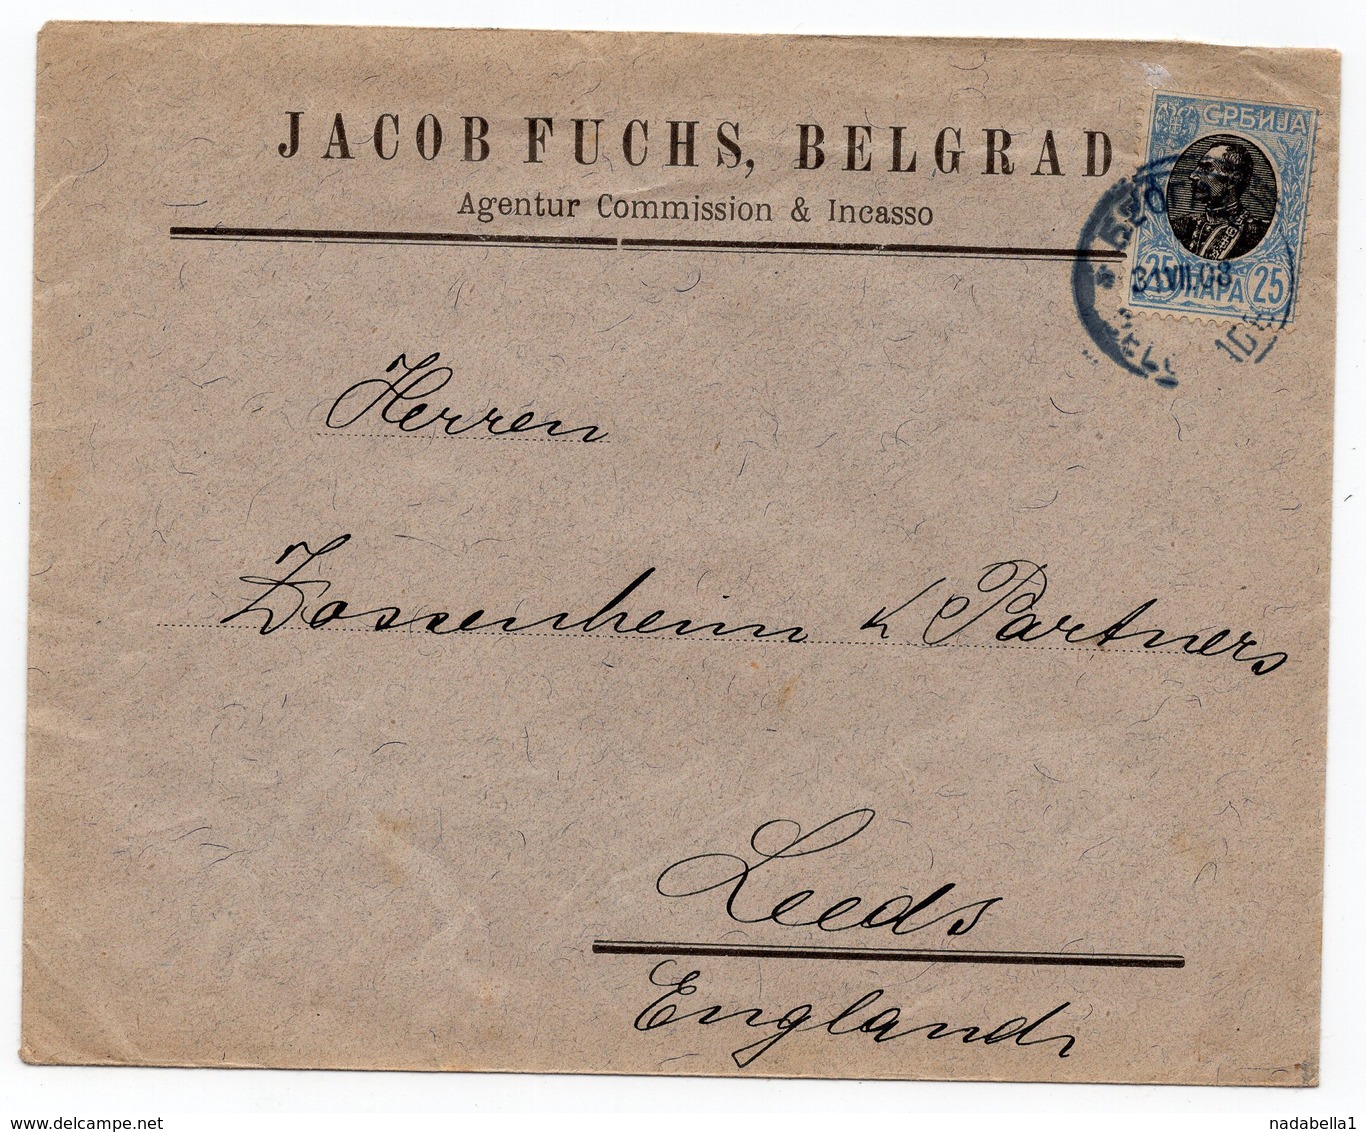 JACOB FUCHS, BELGRAD
Agentur Commission & Incasso
СРБИЈА
25 ПАРА 25
31.VII.08
Herren
Dossenheim & Partners
Leeds
England
www.delcampe.net
nadabella1